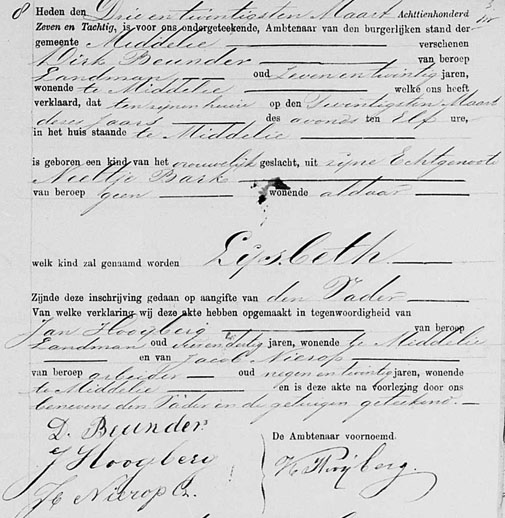 8 Heden den Drie en twintigsten Maart Achttienhonderd
Zeven en Tachtig, is voor ons ondergeteekende, Ambtenaar van den burgerlijken stand der
gemeente Middelie verschenen
Dirk Beunder van beroep
Landman oud zeven en twintig jaren,
wonende te Middelie welke ons heeft
verklaard, dat ten zijnen huize op den Twentigsten Maart
dezes jaars des avonds ten Elf ure,
in het huis staande te Middelie
is geboren een kind van het vrouwelijk geslacht, uit zijne Echtgenoote
Neeltje Bark
van beroep geen wonende aldaar
welk kind zal genaamd worden Lijsbeth
Zijnde deze inschrijving gedaan op aangifte van den Vader
Van welke verklaring wij deze akte hebben opgemaakt in tegenwoordigheid van
Jan Hoogberg van beroep
Landman oud jaren, wonende te Middelie
en van Jacob Nierop
van beroep arbeider oud negen en twintig jaren, wonende
te Middelie en is deze akte na voorlezing door ons
benevens den Vader en de getuigen geteekend.
D. Beunder
J Hoogberg
Nierop
De Ambtenaar voornoemd.